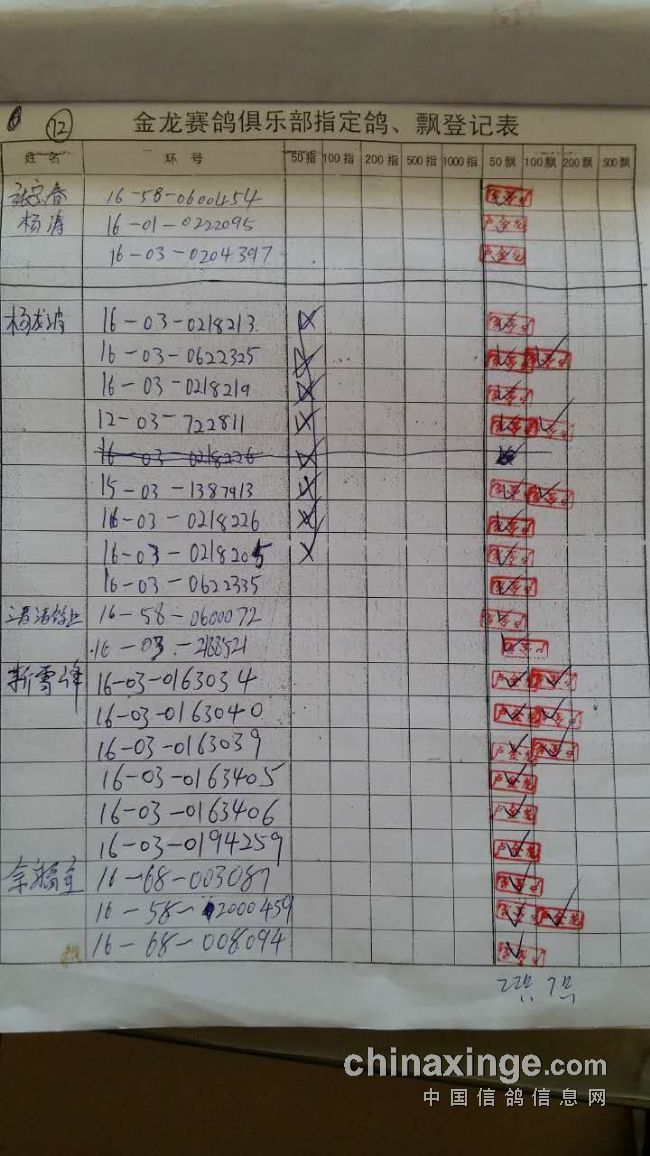 72
金龙赛鸽俱乐部指定鸽、飘登记表
姓名 环号 50指 100指 200指 500指 1000指 50飘 100飘 200飘 500飘
16-58-0600454
杨涛 16-01-0222095
16-03-0204397
杨龙波 16-03-0218213
16-03-0622325
16-03-0218219
12-03-722811
16-03-0218226
15-03-1387913
16-03-0218226
16-03-0218205
16-03-0622335
16-58-0600072
16-03-2188521
靳雪峰 16-03-0163034
16-03-0163040
16-03-0163039
16-03-0163405
16-03-0163406
16-03-0194259
16-68-003087
16-58-2000459
16-68-008094
chinaxinge.com
中国信鸽信息网